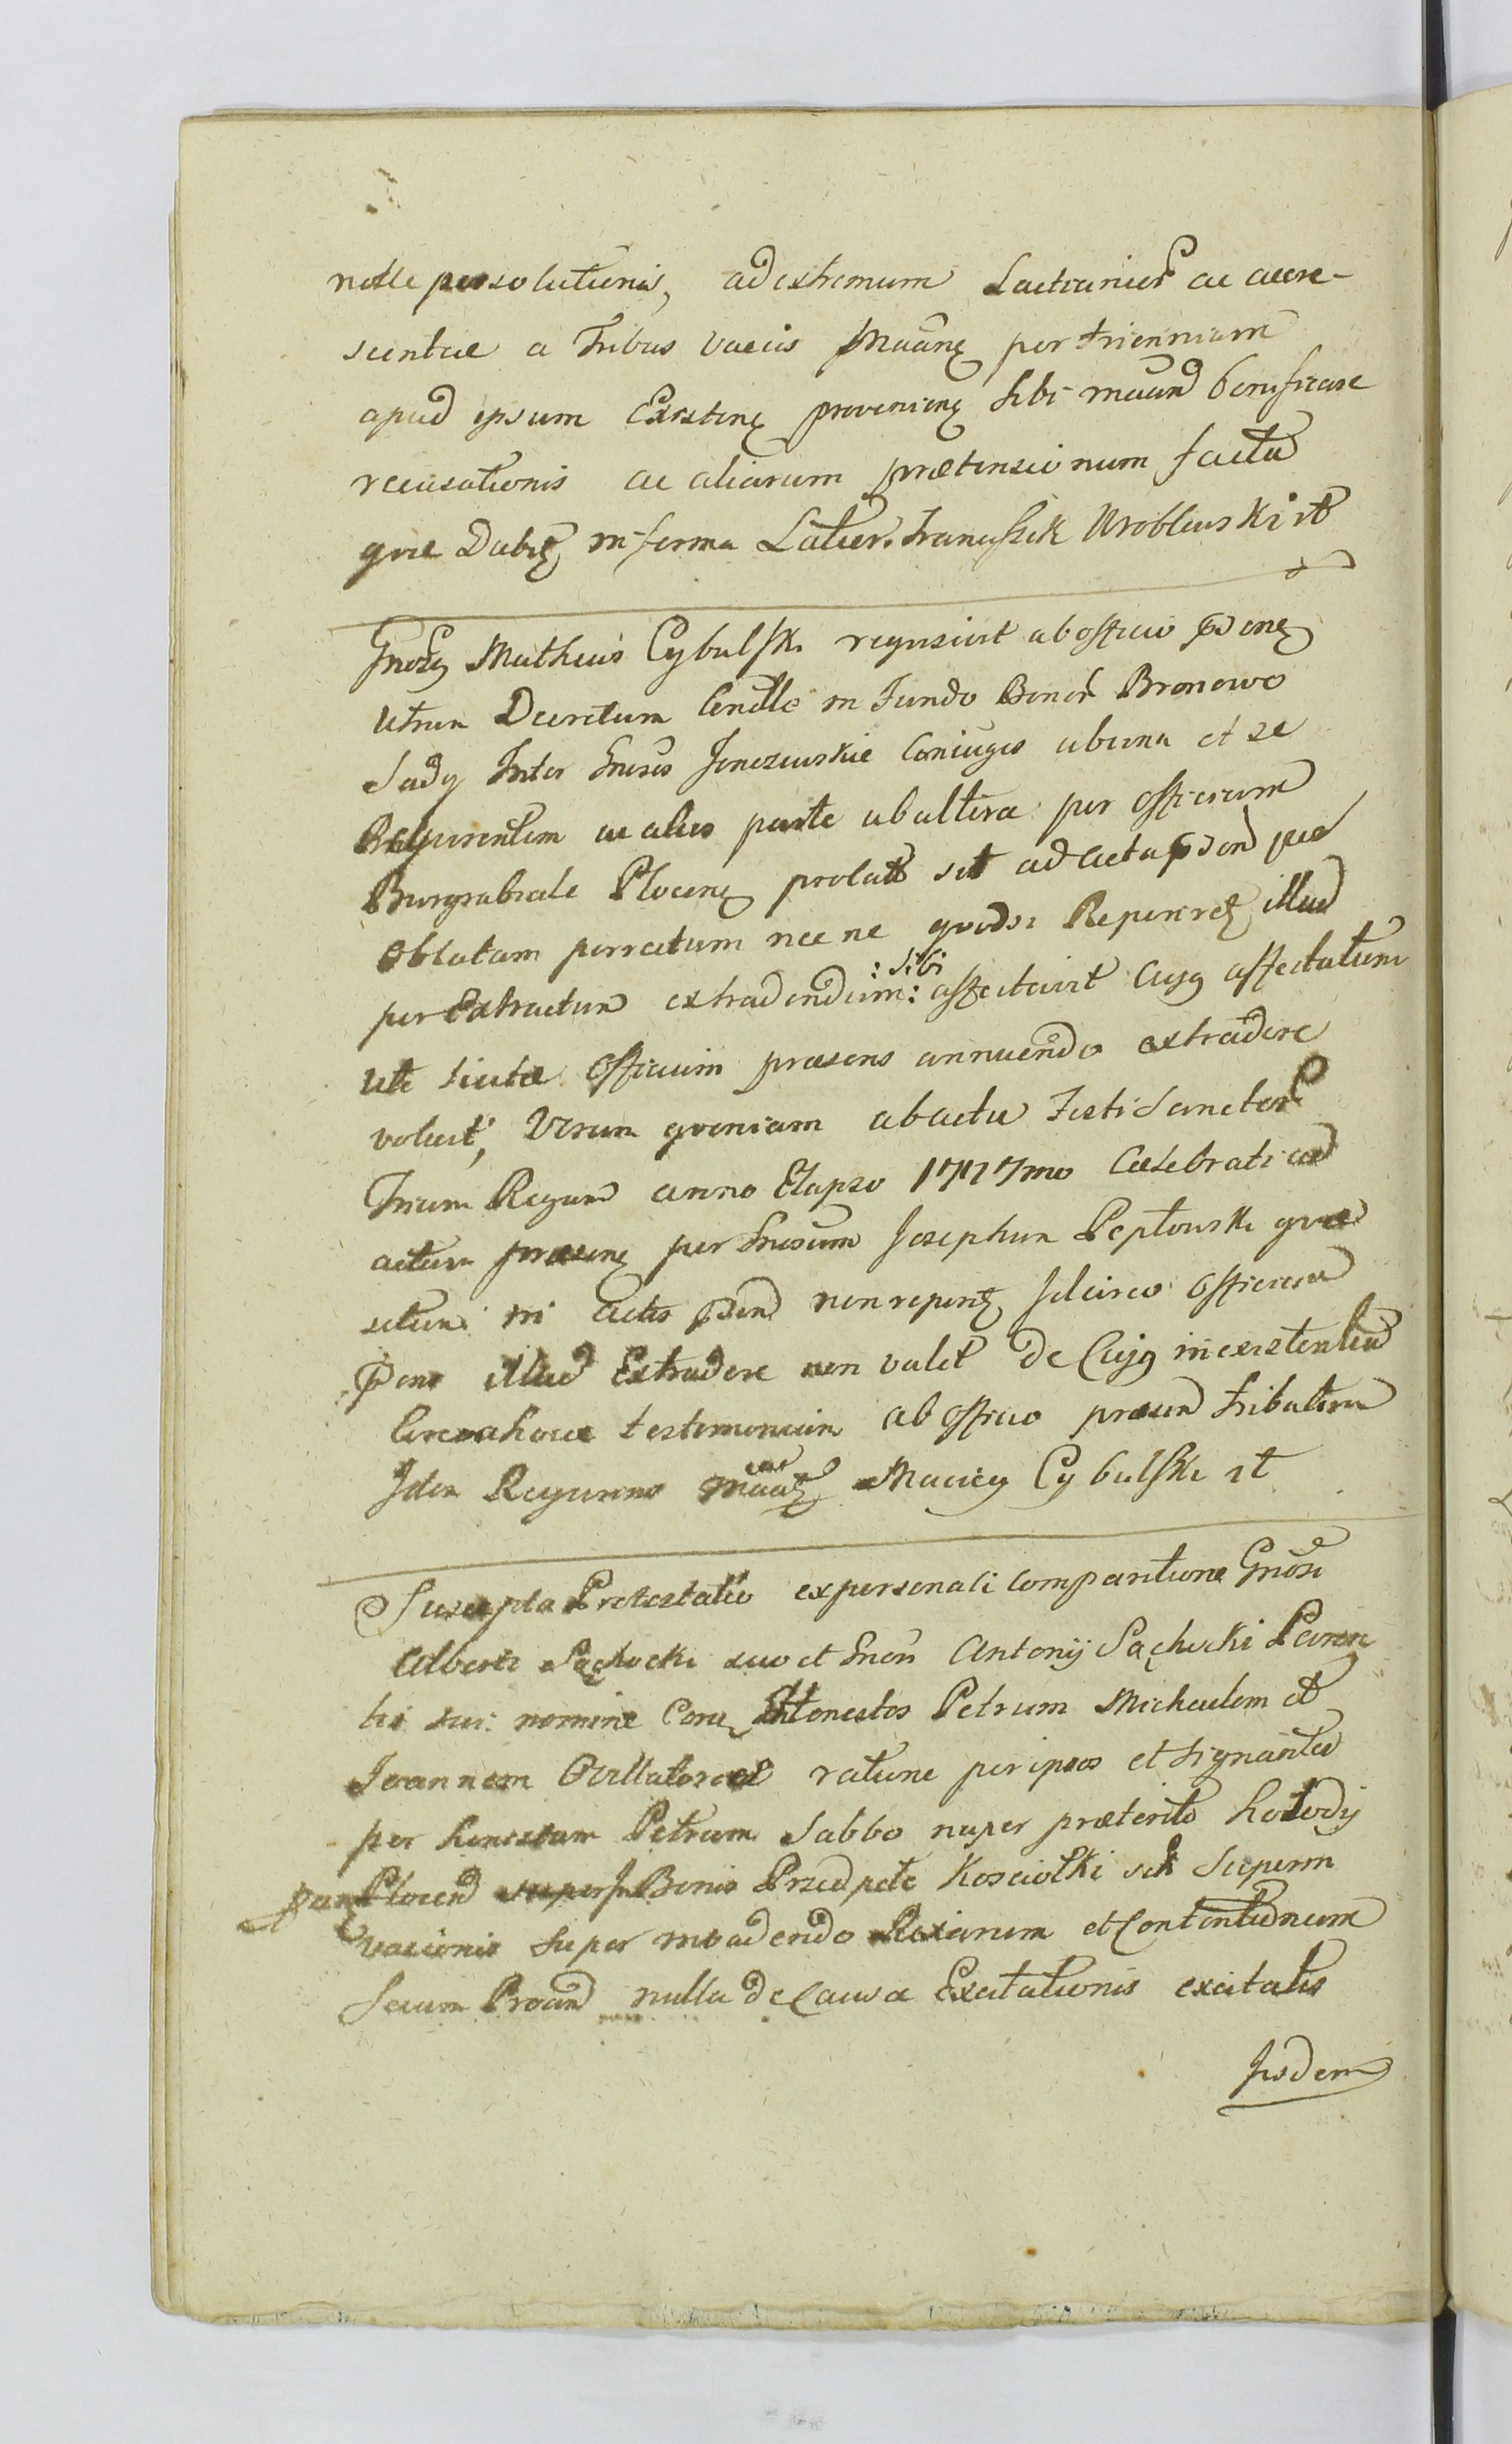 nolle persolutionis, ad extremum Lacticinior ac accre-
scentiae a Tribus vaccis Maane per triennium
apud ipsum Existen provenien sibi maand bonificare
recusationis ac aliarum praetensionum facta
que Dabit in forma Latiori Franciszek Wroblewski it
Gnosus Matheus Cybulski requisivit ab officio psenę
utrum Decretum Condle in Fundo Bonor Bronowo
Sady Inter Gnosos Jonczewskie Coniuges ab una et se
Requirentem ac alios parte ab altera per officium
Burgrabiale Plocenę prolatt sit ad acta psend per
oblatam porrectum nec ne quodsi Reperiret illud
per Extractum extradendum :sibi: affectavit Cujus affectatum
uti iusta officium praesens annuendo extradere
voluit, Verum quoniam ab actu Festi Sanctor
Trium Regum anno Elapso 1777mo Celebrati ad
actum praesenę per Gnosum Josephum Peptowski quae
situm in actis psend non reperit Idcirco officium
psens illud Extradere non valet de Cujus inexistentia
ab officio praesen tributum
Idem Requirens Maciey Cybulski it
Suscepta Protestatio ex personali Comparitione Gnosi
Alberti Sąchocki suo et Gnosi Antonij Sąchocki Paren
tis sui nomine Cora Honestos Petrum Michaelem et
Joannem ratione per ipsos et signanter
per honestum Petrum Sabbo nuper praeterito hotody
Plocend super Bonis Przedpełe Kosciołki sed Superin
vacionis super invadendo Rixarum et Contentionum
Secum Proand nulla de Causa Excitationis excitatis
Iisdem